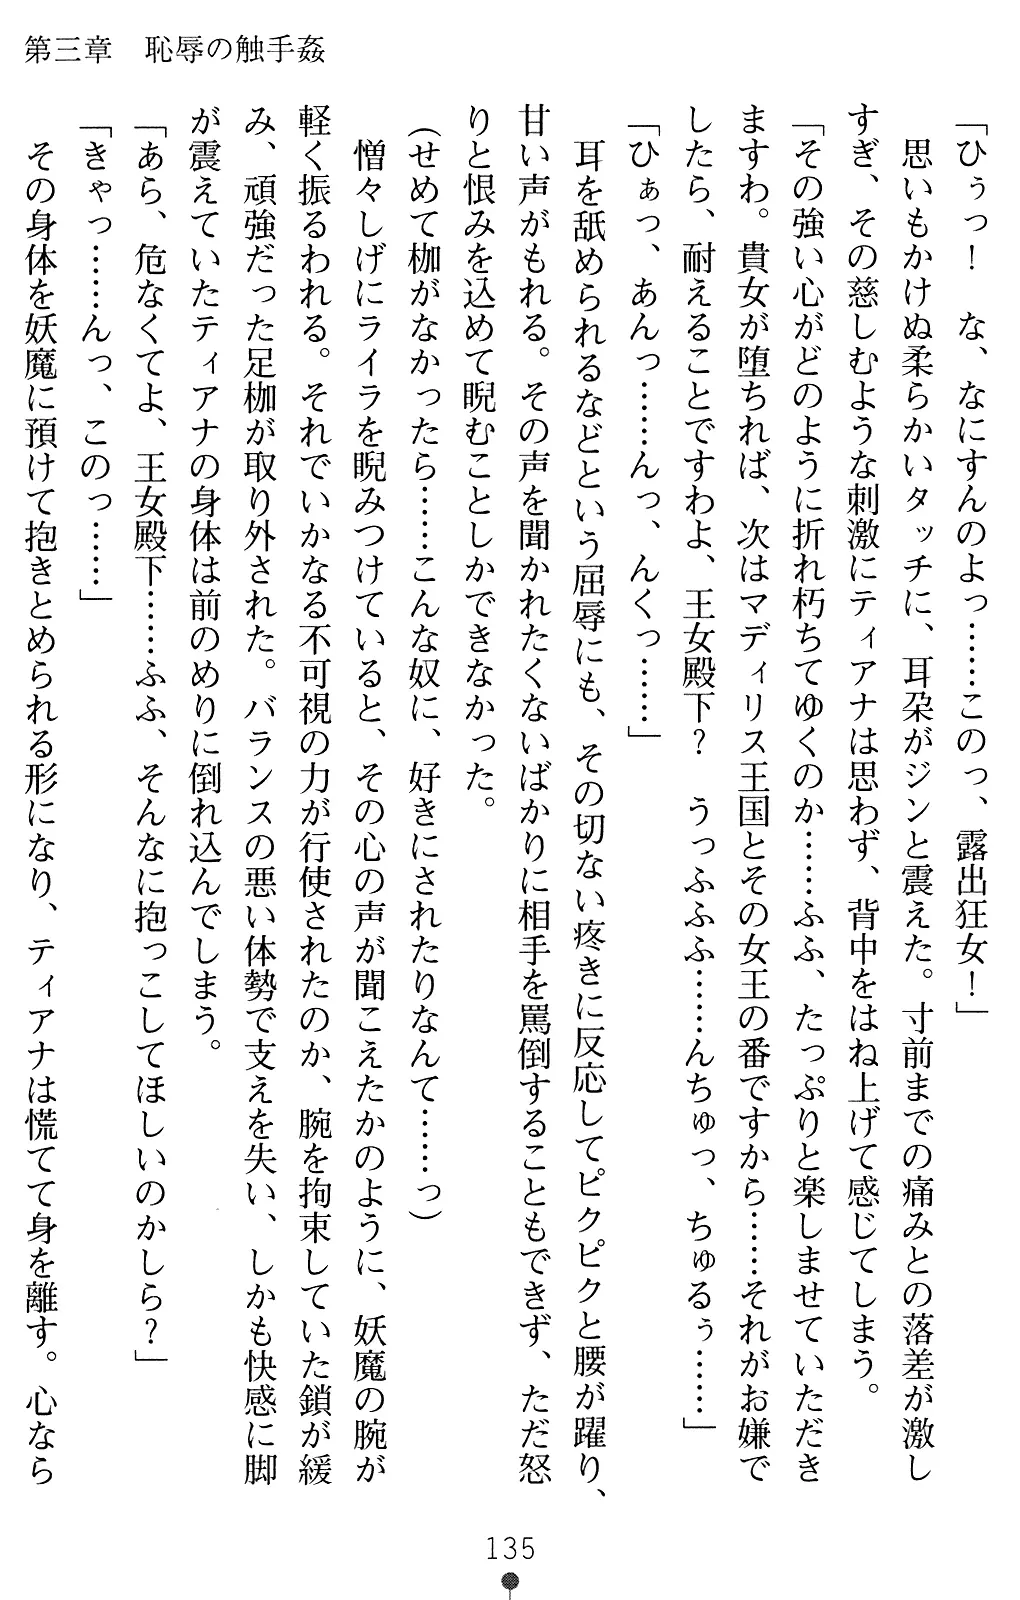 第三章　恥辱の触手姦
「ひぅっ！　な、なにすんのよっ……このっ、露出狂女！」
　思いもかけぬ柔らかいタッチに、耳朶がジンと震えた。寸前までの痛みとの落差が激し
すぎ、その慈しむような刺激にティアナは思わず、背中をはね上げて感じてしまう。
「その強い心がどのように折れ朽ちてゆくのか……ふふ、たっぷりと楽しませていただき
ますわ。貴女が堕ちれば、次はマディリス王国とその女王の番ですから……それがお嫌で
したら、耐えることですわよ、王女殿下？　うっふふふ……んちゅっ、ちゅるぅ……」
「ひぁっ、あんっ……んっ、んくっ……」
　耳を舐められるなどという屈辱にも、その切ない疼きに反応してピクピクと腰が躍り、
甘い声がもれる。その声を聞かれたくないばかりに相手を罵倒することもできず、ただ怒
りと恨みを込めて睨むことしかできなかった。
（せめて枷がなかったら……こんな奴に、好きにされたりなんて……っ）
　憎々しげにライラを睨みつけていると、その心の声が聞こえたかのように、妖魔の腕が
軽く振るわれる。それでいかなる不可視の力が行使されたのか、腕を拘束していた鎖が緩
み、頑強だった足枷が取り外された。バランスの悪い体勢で支えを失い、しかも快感に脚
が震えていたティアナの身体は前のめりに倒れ込んでしまう。
「あら、危なくてよ、王女殿下……ふふ、そんなに抱っこしてほしいのかしら？」
「きゃっ……んっ、このっ……」
　その身体を妖魔に預けて抱きとめられる形になり、ティアナは慌てて身を離す。心なら
135